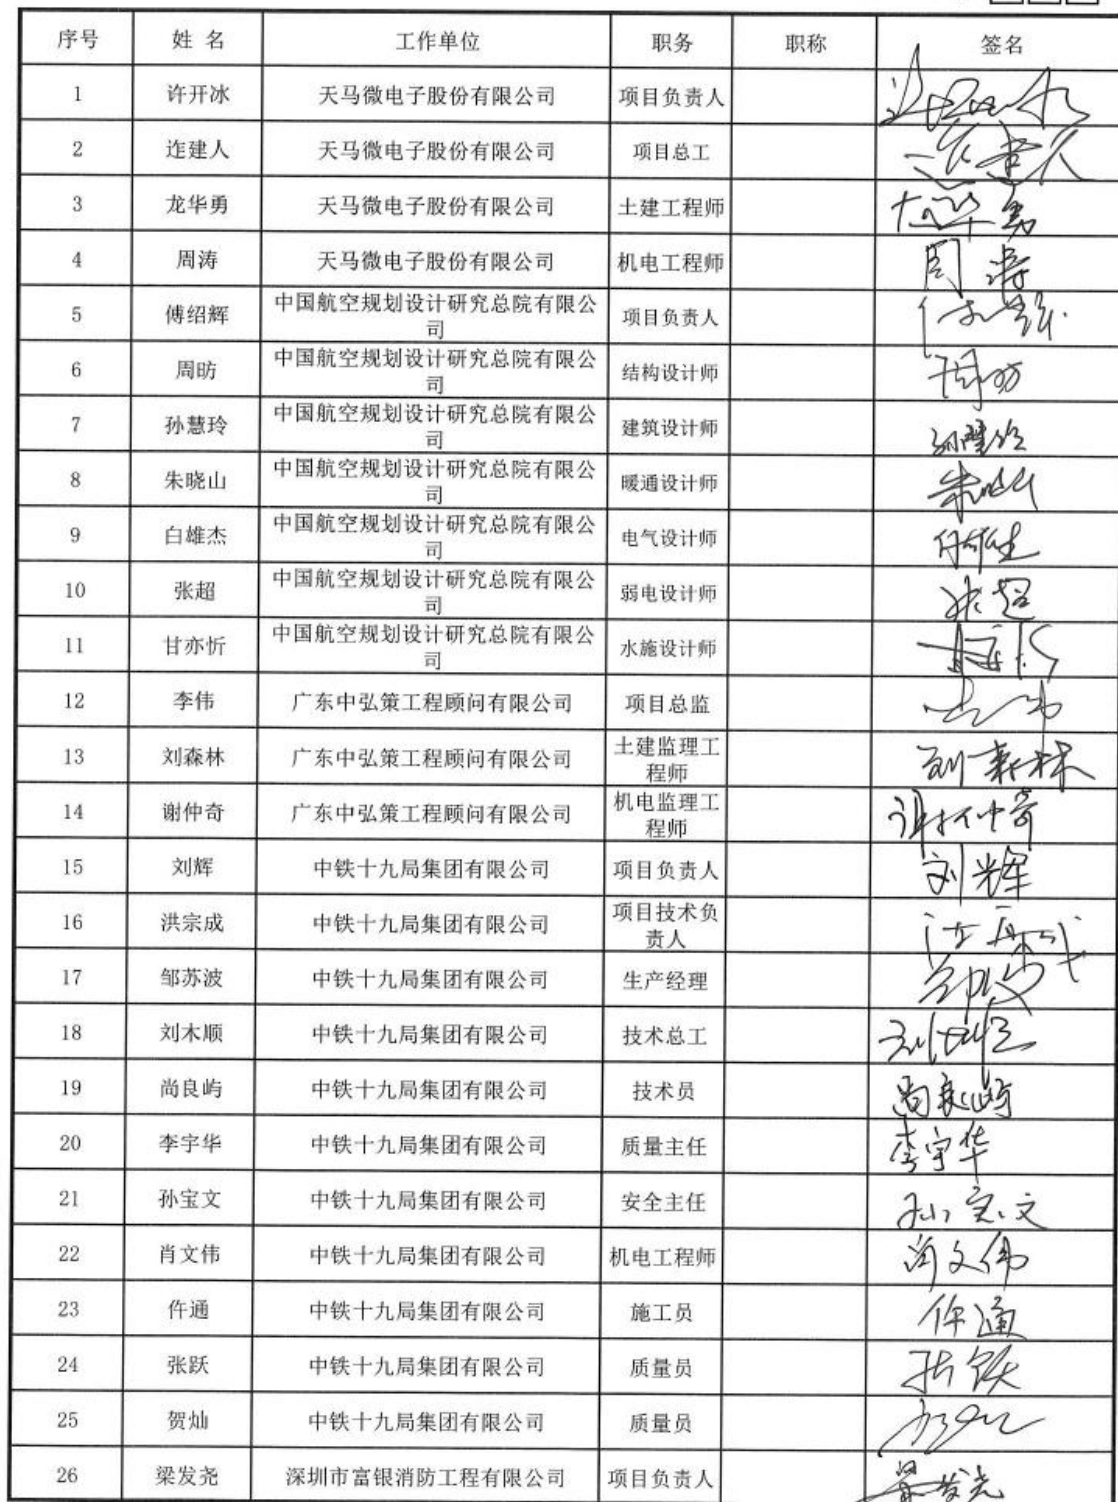 序号 姓 名 工作单位 职务 职称 签名
1 许开冰 天马微电子股份有限公司 项目负责人
2 迮建人 天马微电子股份有限公司 项目总工 迮建人
3 龙华勇 天马微电子股份有限公司 土建工程师 龙华勇
4 周涛 天马微电子股份有限公司 机电工程师 周涛
5 傅绍辉 中国航空规划设计研究总院有限公
司 项目负责人
6 周昉 中国航空规划设计研究总院有限公
司 结构设计师 周昉
7 孙慧玲 中国航空规划设计研究总院有限公
司 建筑设计师 孙慧玲
8 朱晓山 中国航空规划设计研究总院有限公
司 暖通设计师 朱晓山
9 白雄杰 中国航空规划设计研究总院有限公
司 电气设计师
10 张超 中国航空规划设计研究总院有限公
司 弱电设计师 张超
11 甘亦忻 中国航空规划设计研究总院有限公
司 水施设计师 甘亦忻
12 李伟 广东中弘策工程顾问有限公司 项目总监 李伟
13 刘森林 广东中弘策工程顾问有限公司 土建监理工
程师 刘森林
14 谢仲奇 广东中弘策工程顾问有限公司 机电监理工
程师 谢仲奇
15 刘辉 中铁十九局集团有限公司 项目负责人 刘辉
16 洪宗成 中铁十九局集团有限公司 项目技术负
责人 洪宗成
17 邹苏波 中铁十九局集团有限公司 生产经理
18 刘木顺 中铁十九局集团有限公司 技术总工 刘木顺
19 尚良屿 中铁十九局集团有限公司 技术员 尚良屿
20 李宇华 中铁十九局集团有限公司 质量主任 李宇华
21 孙宝文 中铁十九局集团有限公司 安全主任 孙宝文
22 肖文伟 中铁十九局集团有限公司 机电工程师 肖文伟
23 仵通 中铁十九局集团有限公司 施工员 仵通
24 张跃 中铁十九局集团有限公司 质量员 张跃
25 贺灿 中铁十九局集团有限公司 质量员
26 梁发尧 深圳市富银消防工程有限公司 项目负责人 梁发尧